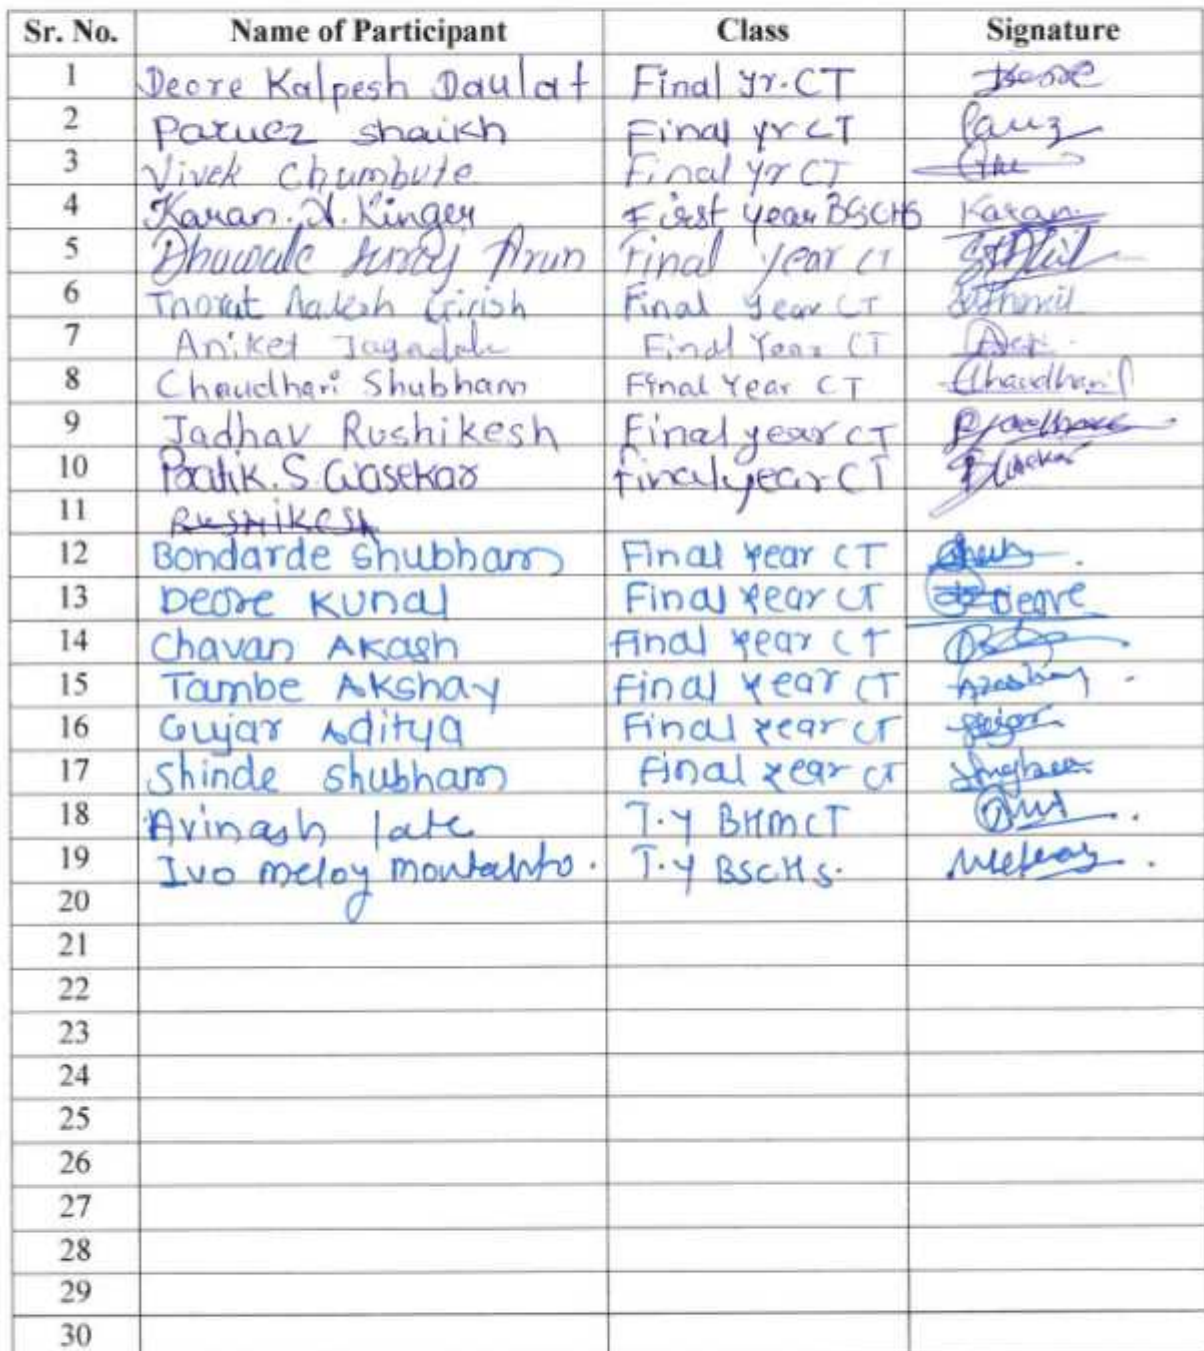 Sr. No. Name of Participant Class Signature
1 Deore Kalpesh Daulat Final yr. CT Deore
2 Parvez shaikh Final yr CT
3 Vivek Chumbute Final yr CT
4 Karan. N. Kinger First year BSCHS Karan
5 Dhuwale Suraj Arun Final year CT
6 Thorat Aakesh Girish Final Year CT
7 Aniket Jagadale Final Year CT
8 Chaudhari Shubham Final Year CT Chaudhari
9 Jadhav Rushikesh Final year CT
10 Pratik. S. Gasekar final year CT
11 Rushikesh
12 Bondarde Shubham Final year CT
13 Deore Kunal Final year CT Deore
14 Chavan Akash Final year CT
15 Tambe Akshay Final year CT
16 Gujar Aditya Final year CT
17 Shinde Shubham Final year CT
18 Avinash late T.Y BHMCT
19 Ivo meloy T.Y BSCHS.
20
21
22
23
24
25
26
27
28
29
30